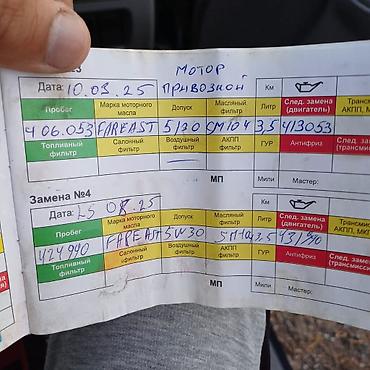 МОТОР
Дата: 10.03.25 ПРИВОЗНОЙ Км
Пробег Марка моторного масла Допуск Масляный фильтр Литр След. замена (двигатель)
406.053 FAREAST 5/30 SM104 3,5 413053
Топливный фильтр Салонный фильтр Воздушный фильтр АКПП фильтр ГУР Антифриз
МП Мили Мастер:
Замена №4 Км
Дата: 25 08.25
Пробег Марка моторного масла Допуск Масляный фильтр Литр След. замена (двигатель)
424940 FAREAST 5W30 3,5
Топливный фильтр Салонный фильтр Воздушный фильтр АКПП фильтр ГУР Антифриз
МП Мили Мастер: